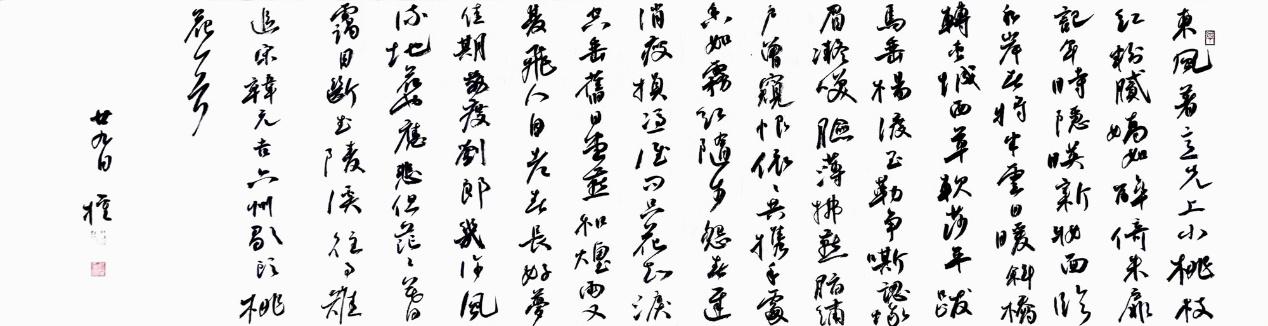 東風著意先上小桃枝
紅粉膩嬌如醉倚朱扉
記年時隱映新妝面臨
水岸春將半雲日暖斜橋
轉夾城西草軟莎平跋
馬垂楊渡玉勒爭嘶認蛾
眉凝咲臉薄拂燕脂繡
戶曾窺恨依依共攜手處
香如霧紅隨步怨春遲
消瘦損憑誰問只花知淚
空垂舊日堂燕和煙雨又
雙飛人自老春長好夢
佳期前度劉郎幾許風
流地花也應悲但茫茫暮
靄目斷武陵溪往事難
追宋韓元吉六州歌頭桃
花一首
廿九日